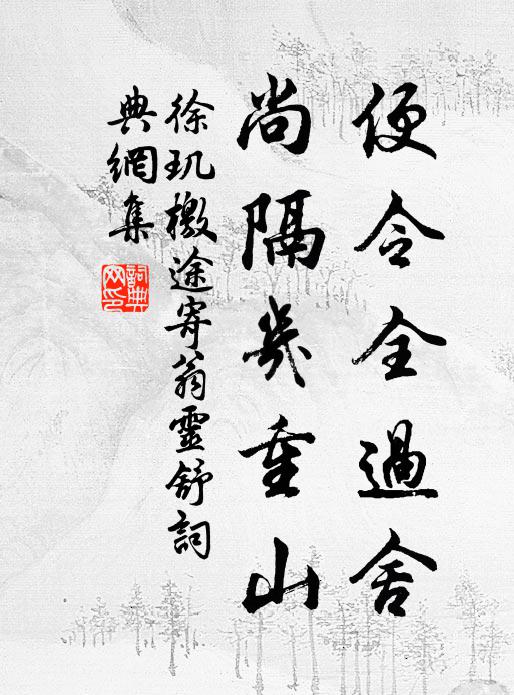 便令全過舍
尚隔幾重山
徐璣檄途寄翁靈舒詞
典網集
詞典
网印